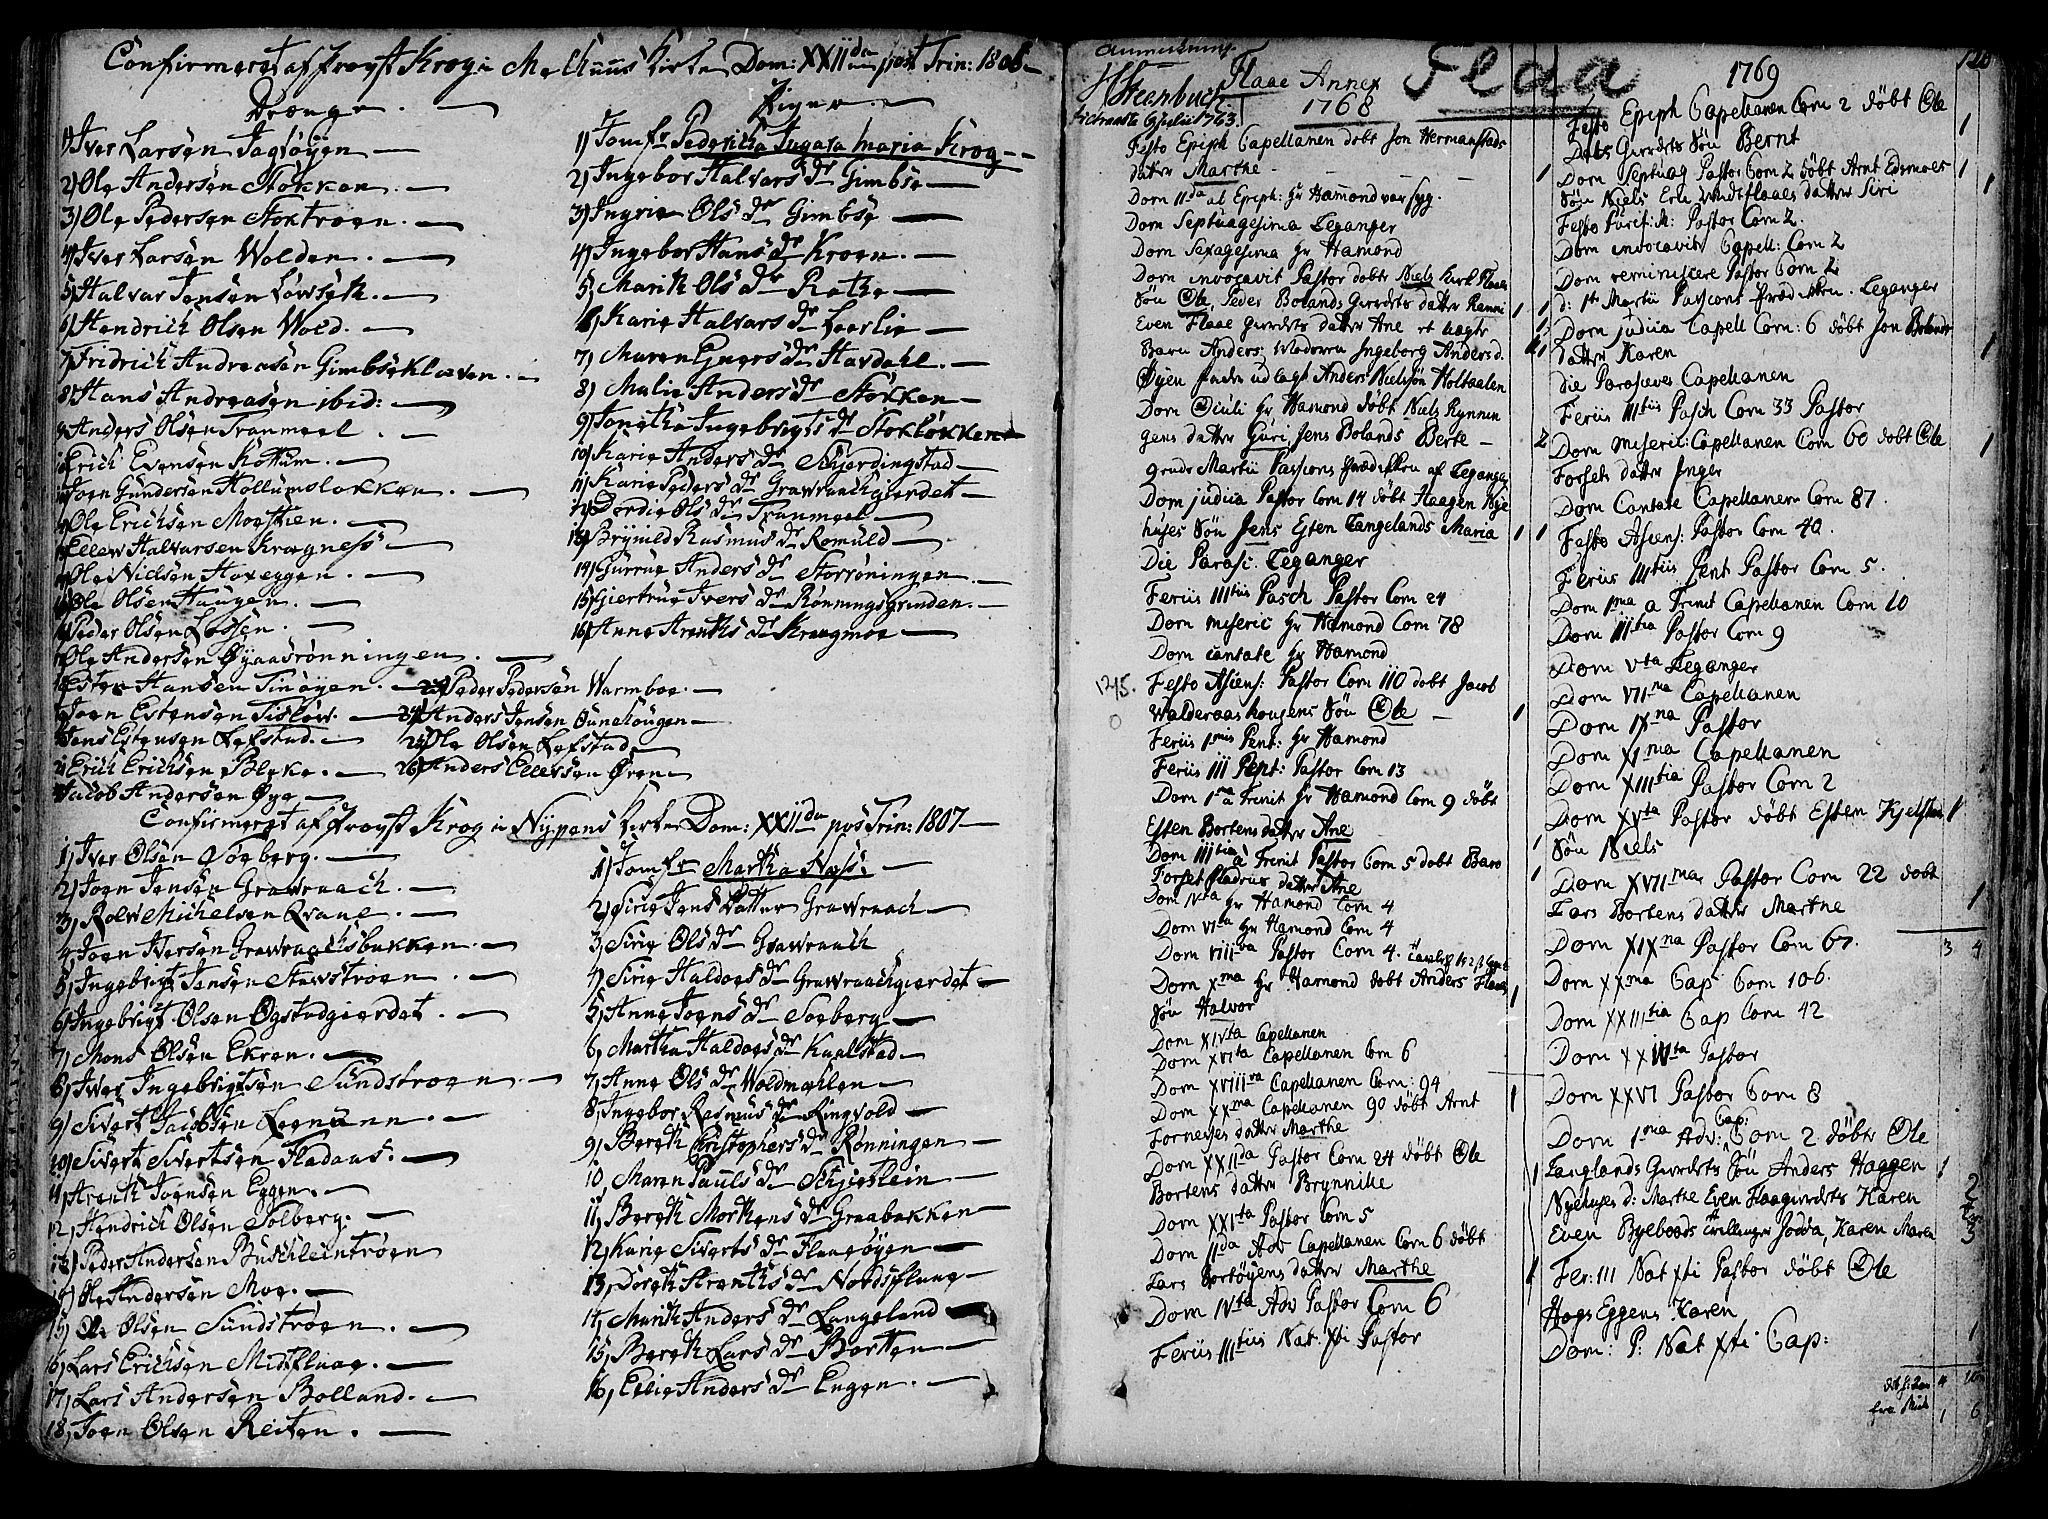 Confirmeret af Provst Krog i Melhuus Kirke Dom: XXII da post Trin: 1806
Drenge.
1) Iver Larsen
2) Ole Andersen Stokken.
3) Ole Pedersen Stoktroen.
4) Iver Larsen Wolden.
5) Halvar Jensen Løvset.
6) Hendrich Olsen Wold.
7) Fridrich Andreasen Gimbsekleven.
8) Hans Andreasen ibid:
9) Anders Olsen Tranmeel.
10) Erich Evensen Kottum.
11) Joen Gundersen Hollumsløkken.
12) Ole Erichsen Moesthen.
13) Ellew Halvarsen Kragness
14) Ole Nielsen Hoxeggen.
15) Ole Olsen Haugen.
16) Peder Olsen Løssen.
17) Ole Andersen Øyaasrønningen.
18) Esten Hansen Tinøyen.
19) Joen Estensen Tisløv.
20) Jens Estensen Løfstad.
21) Erich Erichsen Bleke.
22) Jacob Andersen Øye
23) Peder Pedersen Warmboe.
24) Anders Jensen Sunehougen
25) Ole Olsen Løfstad
26) Anders Ellevsen Øren
Piger.
1) Jomfr Pederikka Ingara Maria Krog
2) Ingebor Halvars dr Gimbse
3) Ingrie Ols dr Gimbse
4) Ingebor Hans dr Kroen.
5) Marit Ols dr Rathe
6) Karie Halvars dr Leerlie
7) Maren Ejners dr Havdahl.
8) Malie Anders dr Stokken
9) Jonetha Ingebrigts dr Stokløkken
10) Karie Anders dr Skjerdingstad
11) Karie Peders dr Grawraachgierdet
12) Dordie Ols dr Tranmeel
13) Brynild Rasmus dr Romuld
14) Gurrue Anders dr Storrøningen.
15) Giertrue Ivers dr Rønningsgrinden.
16) Anne Arenths dr Kraagmoe
Confirmeret af Provst Krog i Nypens Kirke Dom: XXII da pos Trin: 1807
1, Iver Olsen Søeberg.
2, Joen Jensen Grawraach.
3, Rolv Michelsen Qvaal.
4, Joen Iversen Grawraachsbakken.
5, Ingebrigt Jensen Stavstroen.
6, Ingebrigt Olsen Øgstadgierdet.
7, Mons Olsen Ekren.
8, Iver Ingebrigtsen Sundstroen
9, Sivert Jacobsen Leemann.
10, Sivert Sivertsen Fladaas.
11, Arent Joensen Eggen.
12, Hendrich Olsen Solberg.
13, Peder Andersen Buskleintroen
14, Ole Andersen Moe.
15, Ole Olsen Sundstrøen.
16, Lars Erichsen Midtflaae.
17, Lars Andersen Bolland.
18, Joen Olsen Reiten.
1, Jomfr Martha Næss.
2, Sirie Jens Datter Grawraach
3, Sirie Ols dr Grawraach
4, Sirie Haldoes dr Grawraachgierdet
5, Anne Joens dr Soeberg
6, Martha Haldoes dr Kaalstad
7, Anne Ols dr Woldmoehlen
8, Ingebor Rasmus dr Ringvold
9, Bereth Christophers dr Rønningen
10, Maren Pauls dr Skjerstein
11, Bereth Mortens dr Graabakken
12, Karie Siverts dr Flaaøyen
13, Doreth Arenths dr Nordsflaae
14, Marith Anders dr Langeland
15, Bereth Lars dr Borten
16, Ellie Anders dr Engen.
Anmerkning
H Steenbuch
tiltraadte 6 Julii 1763.
Flaae Annex
1768
Flaa
Festo Epiph Capellanen døbt Jon Hermanstads
datter Marthe 1
Dom II da at Epiph: hr Hammond var syg.
Dom Septuagesima Leganger
Dom Sexagesima hr Hamond
Dom invocavit Pastor døbte Niels Kirk Flaaes
Søn Ole, Peder Bolands Gierdets datter Ranni 1 1
Even Flaae Gierdets datter Ane et uægte
Barn Anders: Moderen Ingeborg Anders d.
Øyen fader udlagt Anders Nielsøn Holtaalen
Dom Oculi hr Hamond døbt Niels Rynnin
gens datter Guri Jens Bolands Berte 2
9nde Martii Passions Prædikken af Leganger
Dom judica Pastor Com 14 døbt Haagen Nye
huses Søn Jens Esten Langelands Maria 1 1
Die Parasc. Leganger
Feriis III tiis Pasch Pastor Com 24
Dom miseric hr Hamond Com 78
Dom cantate hr Hamond
1245.
Festo Asiens: Pastor Com 110 døbt Jacob
Walderaashougens Søn Ole 1
Feriis 1mis Pent: hr Hamond
Feriis III Pent: Pastor Com 13
Dom 1ma a Trinit hr Hamond Com 9 døbt
Esten Bortens datter Ane 1
Dom III tia a Trinit Pastor Com 5 døbt Baro
Forset Fladrus datter Ane 1
Dom Vta hr Hamond Com 4
Dom VIta hr Hamond Com 4
Dom VIII va Pastor Com 4.
Dom Xma hr Hamond døbt Anders Flaaes
Søn Halvor 1
Dom XIVta Capellanen
Dom XVIta Capellanen Com 6
Dom XVIII va Capellanen Com: 94
Dom XXma Capellanen 90 døbt Arnt
Fornesses datter Marthe 1
Dom XXII da Pastor Com 24 døbt Ole
Bortens datter Brynnille 1
Dom XXIta Pastor Com 5
Dom II da Adv Capellanen Com 6 døbt
Lars Bortøyens datter Marthe 1
Dom IVta Adv Pastor Com 6
Feriis III tiis Nat: Xti Pastor
1769
Festo Epiph Capellanen Com 2 døbt Ole
Dals Gierdets Søn Bernt 1
Dom Septuag Pastor Com 2 døbt Arnt Edemoes
Søn Niels Erk Midtflaaes datter Siri 1 1
Festo Purif: M: Pastor Com 2.
Dom invocavit Capell: Com 2
Dom reminiscere Pastor Com 2
d: 1te Martii Passions Præd: Hr. Leganger
Dom judica Capell Com: 6 døbt Jon Bolands
datter Karen 1
Die Parasceves Capellanen
Feriis III tiis Pasch Com 33 Pastor
Dom miseric: Capellanen Com 60 døbt Ole
Forsets datter Inger 1
Dom Cantate Capellanen Com 87.
Festo Asiens: Pastor Com 40.
Feriis III tiis Pent Pastor Com 5.
Dom 1ma a Trinit Capellanen Com 10
Dom III tia Pastor Com 9
Dom Vta Leganger
Dom VII ma Capellanen
Dom IXna Pastor
Dom XI ma Capellanen
Dom XIII tia Pastor Com 2
Dom XVta Pastor døbt Esten Kjelstad
Søn Niels 1
Dom XVII ma Pastor Com 22 døbt
Lars Bortens datter Marthe 1
Dom XIXna Pastor Com 67. 3 4
Dom XXma Cap Com 106.
Dom XXIII tia Cap Com 42
Dom XXIVta Pastor
Dom XXVI Pastor Com 8
Dom 1ma Adv: Cap: Com 2. døbte Ole
Langlands Gierdets Søn Anders Haggen 1
Nyehuses d: Marthe Even Flaagierdets Karen 2
Even Byeboods tvillinger Jodda, Karen Maren 3
Fer: III Nat Xti Pastor døbt Ole
Hogs Eggens Karen 1
Dom: P: Nat Xti Cap:
4 10
fra Mich 1 6